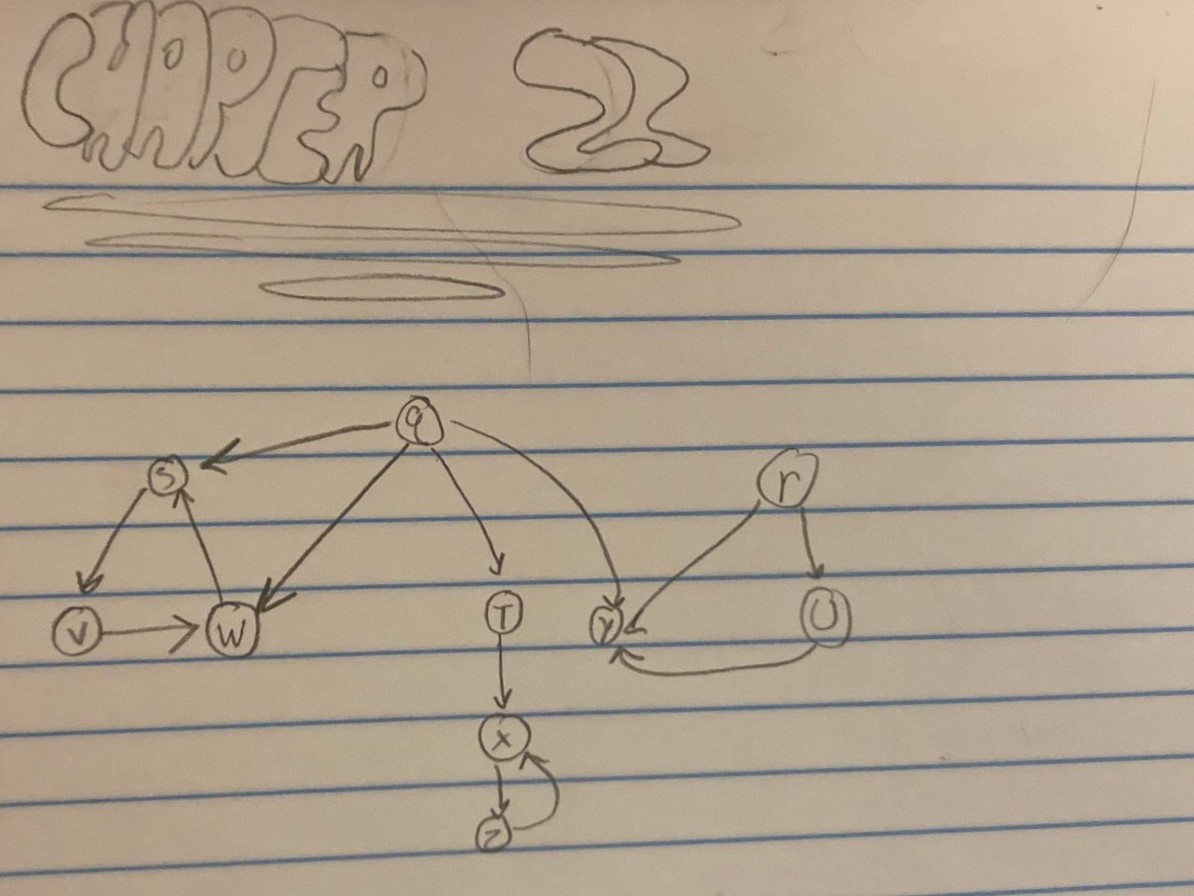 CHAPTER 22
q
s r
v w T Y U
x
z